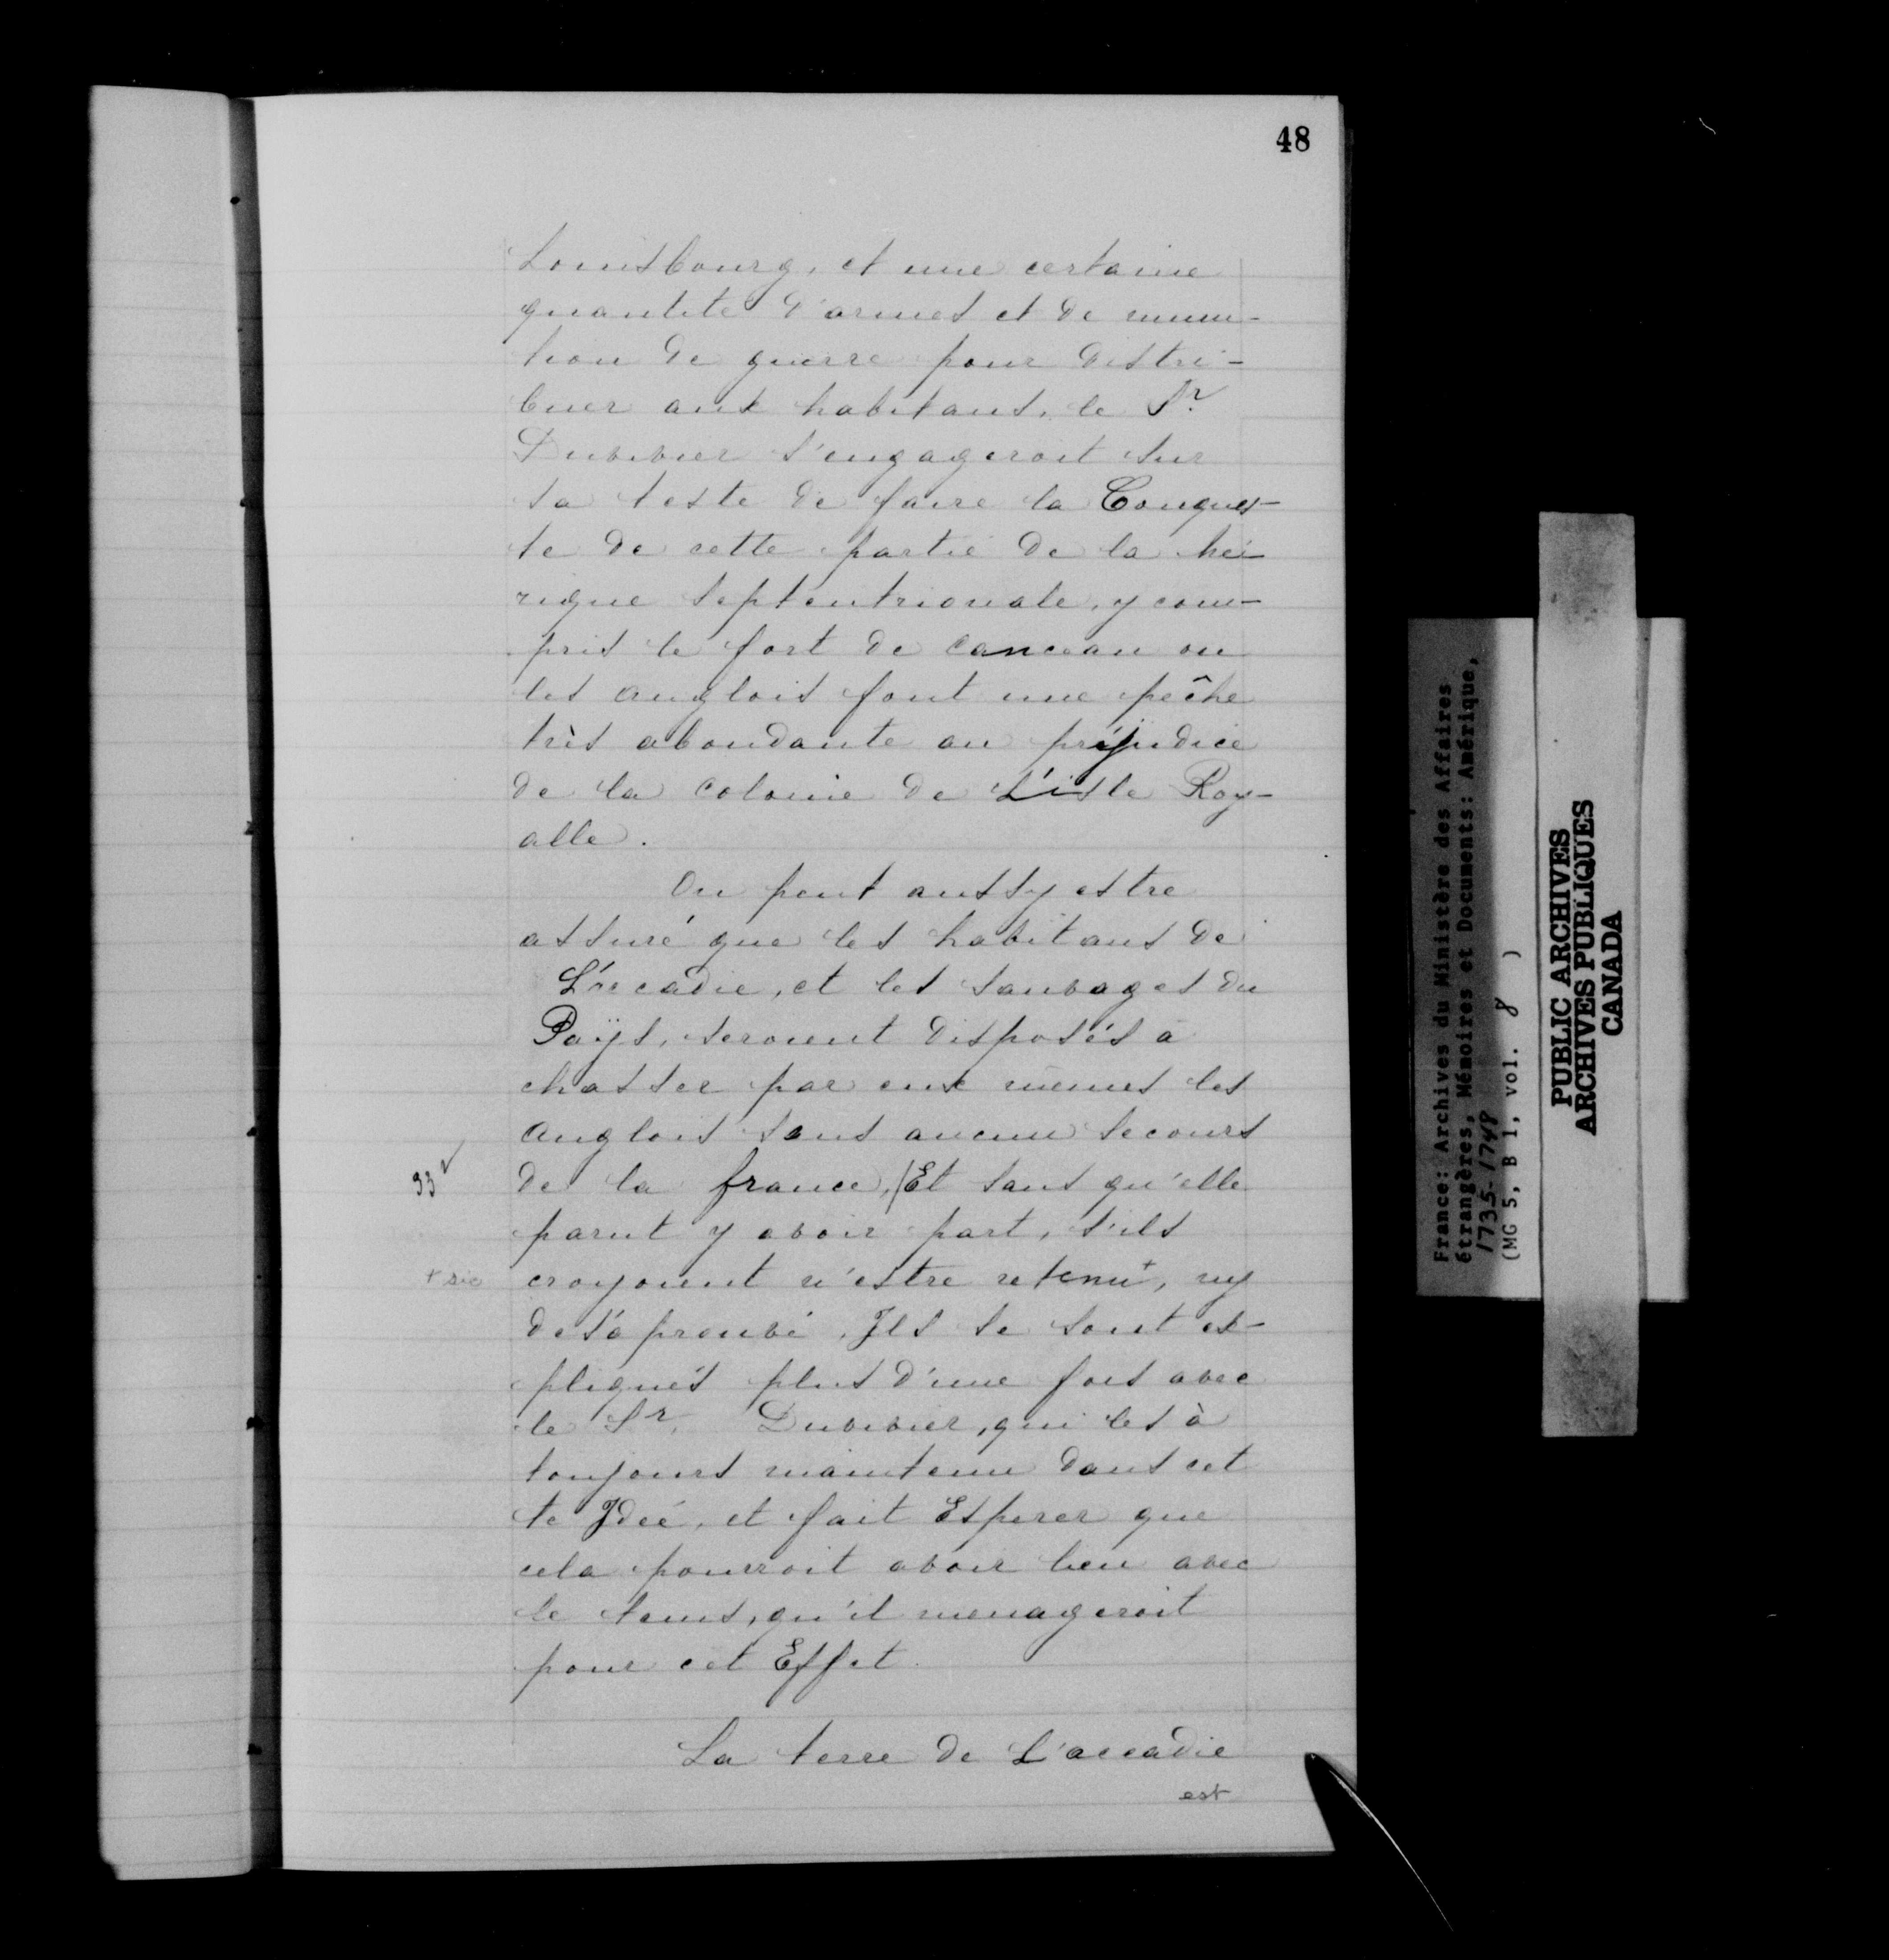 48
Louisbourg, et une certaine
quantité d'armes et de muni-
tion de guerre pour distri-
buer aux habitans, le Sr.
Duvivier s'engageroit sur
sa teste de faire la Conques-
te de cette partie de la
rique Septentrionale, y com-
pris le fort de Canceau ou
les anglois font une pêche
très abondante au préjudice
de la colonie de L'isle Roy-
alle.
On peut aussy estre
assuré que les habitans de
L'accadie, et les sauvages du
Païs, seroient disposés à
chasser par eux mêmes les
anglois sans aucun secours
33v
de la france, / Et sans qu'elle
parut y avoir part, s'ils
+ sic
croyoient n'estre retenu+, ny
desaprouvé, Ils se sont ex-
pliqués plus d'une fois avec
le Sr. Duvivier, qui les à
toujours maintenu dans cet
te Idée, et fait Esperer que
cela pourroit avoir lieu avec
le tems, qu'il menageroit
pour cet Effet.
La terre de L'accadie
est
France: Archives du Ministère des Affaires
étrangères, Mémoires et Documents: Amérique,
1735-1748
(MG 5, B 1, vol. 8 )
PUBLIC ARCHIVES
ARCHIVES PUBLIQUES
CANADA